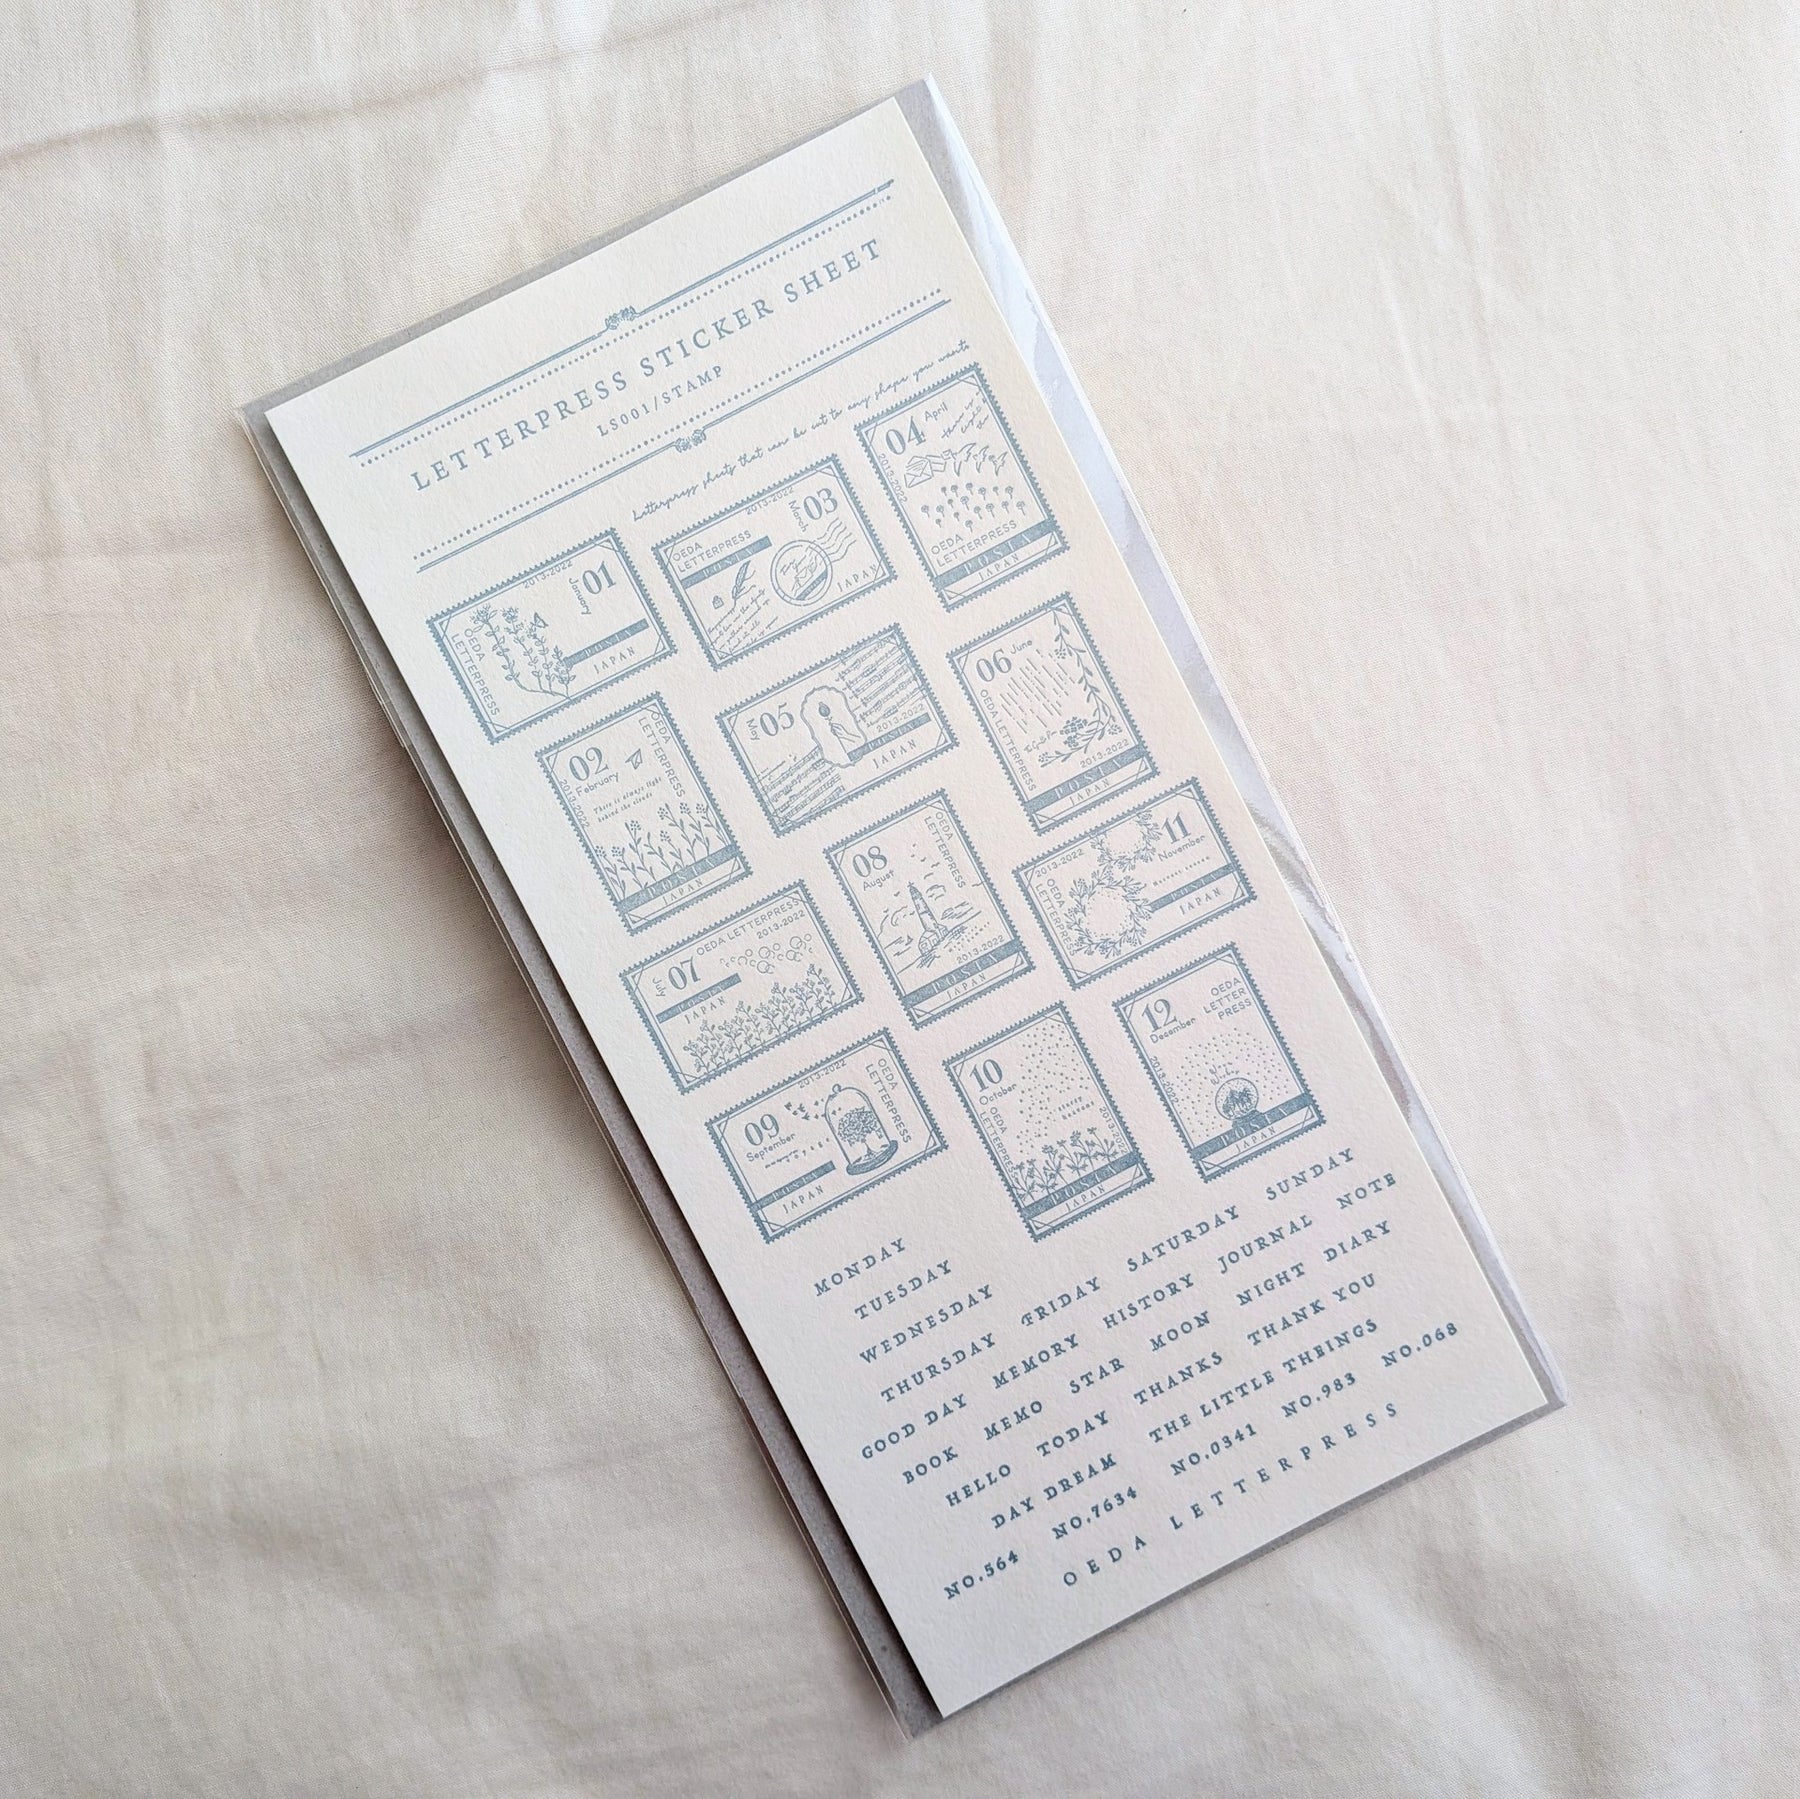 LETTERPRESS STICKER SHEET
LS001/STAMP
Letterpress sheets that can be cut to any shape you wants
2013-2022
January
01
OEDA
LETTERPRESS
POSTA
JAPAN
2013-2022
March
03
OEDA
LETTERPRESS
POSTA
JAPAN
04
April
2013-2022
OEDA
LETTERPRESS
POSTA
JAPAN
02
February
OEDA
LETTERPRESS
2013-2022
There is always light
behind the clouds
POSTA
JAPAN
May
05
2013-2022
POSTA
JAPAN
06
June
OEDA LETTERPRESS
2013-2022
POSTA
JAPAN
July
07
OEDA LETTERPRESS
2013-2022
POSTA
JAPAN
08
August
OEDA
LETTERPRESS
2013-2022
POSTA
JAPAN
11
November
2013-2022
OEDA
LETTERPRESS
POSTA
JAPAN
09
September
2013-2022
OEDA
LETTERPRESS
POSTA
JAPAN
10
October
OEDA
LETTERPRESS
starry
heavens
2013-2022
POSTA
JAPAN
12
December
OEDA
LETTER
PRESS
2013-2022
POSTA
JAPAN
MONDAY
TUESDAY
WEDNESDAY
THURSDAY FRIDAY SATURDAY SUNDAY
GOOD DAY MEMORY HISTORY JOURNAL NOTE
BOOK MEMO STAR MOON NIGHT DIARY
HELLO TODAY THANKS THANK YOU
DAY DREAM THE LITTLE THBINGS
NO.564 NO.7634 NO.0341 NO.983 NO.068
OEDA LETTERPRESS